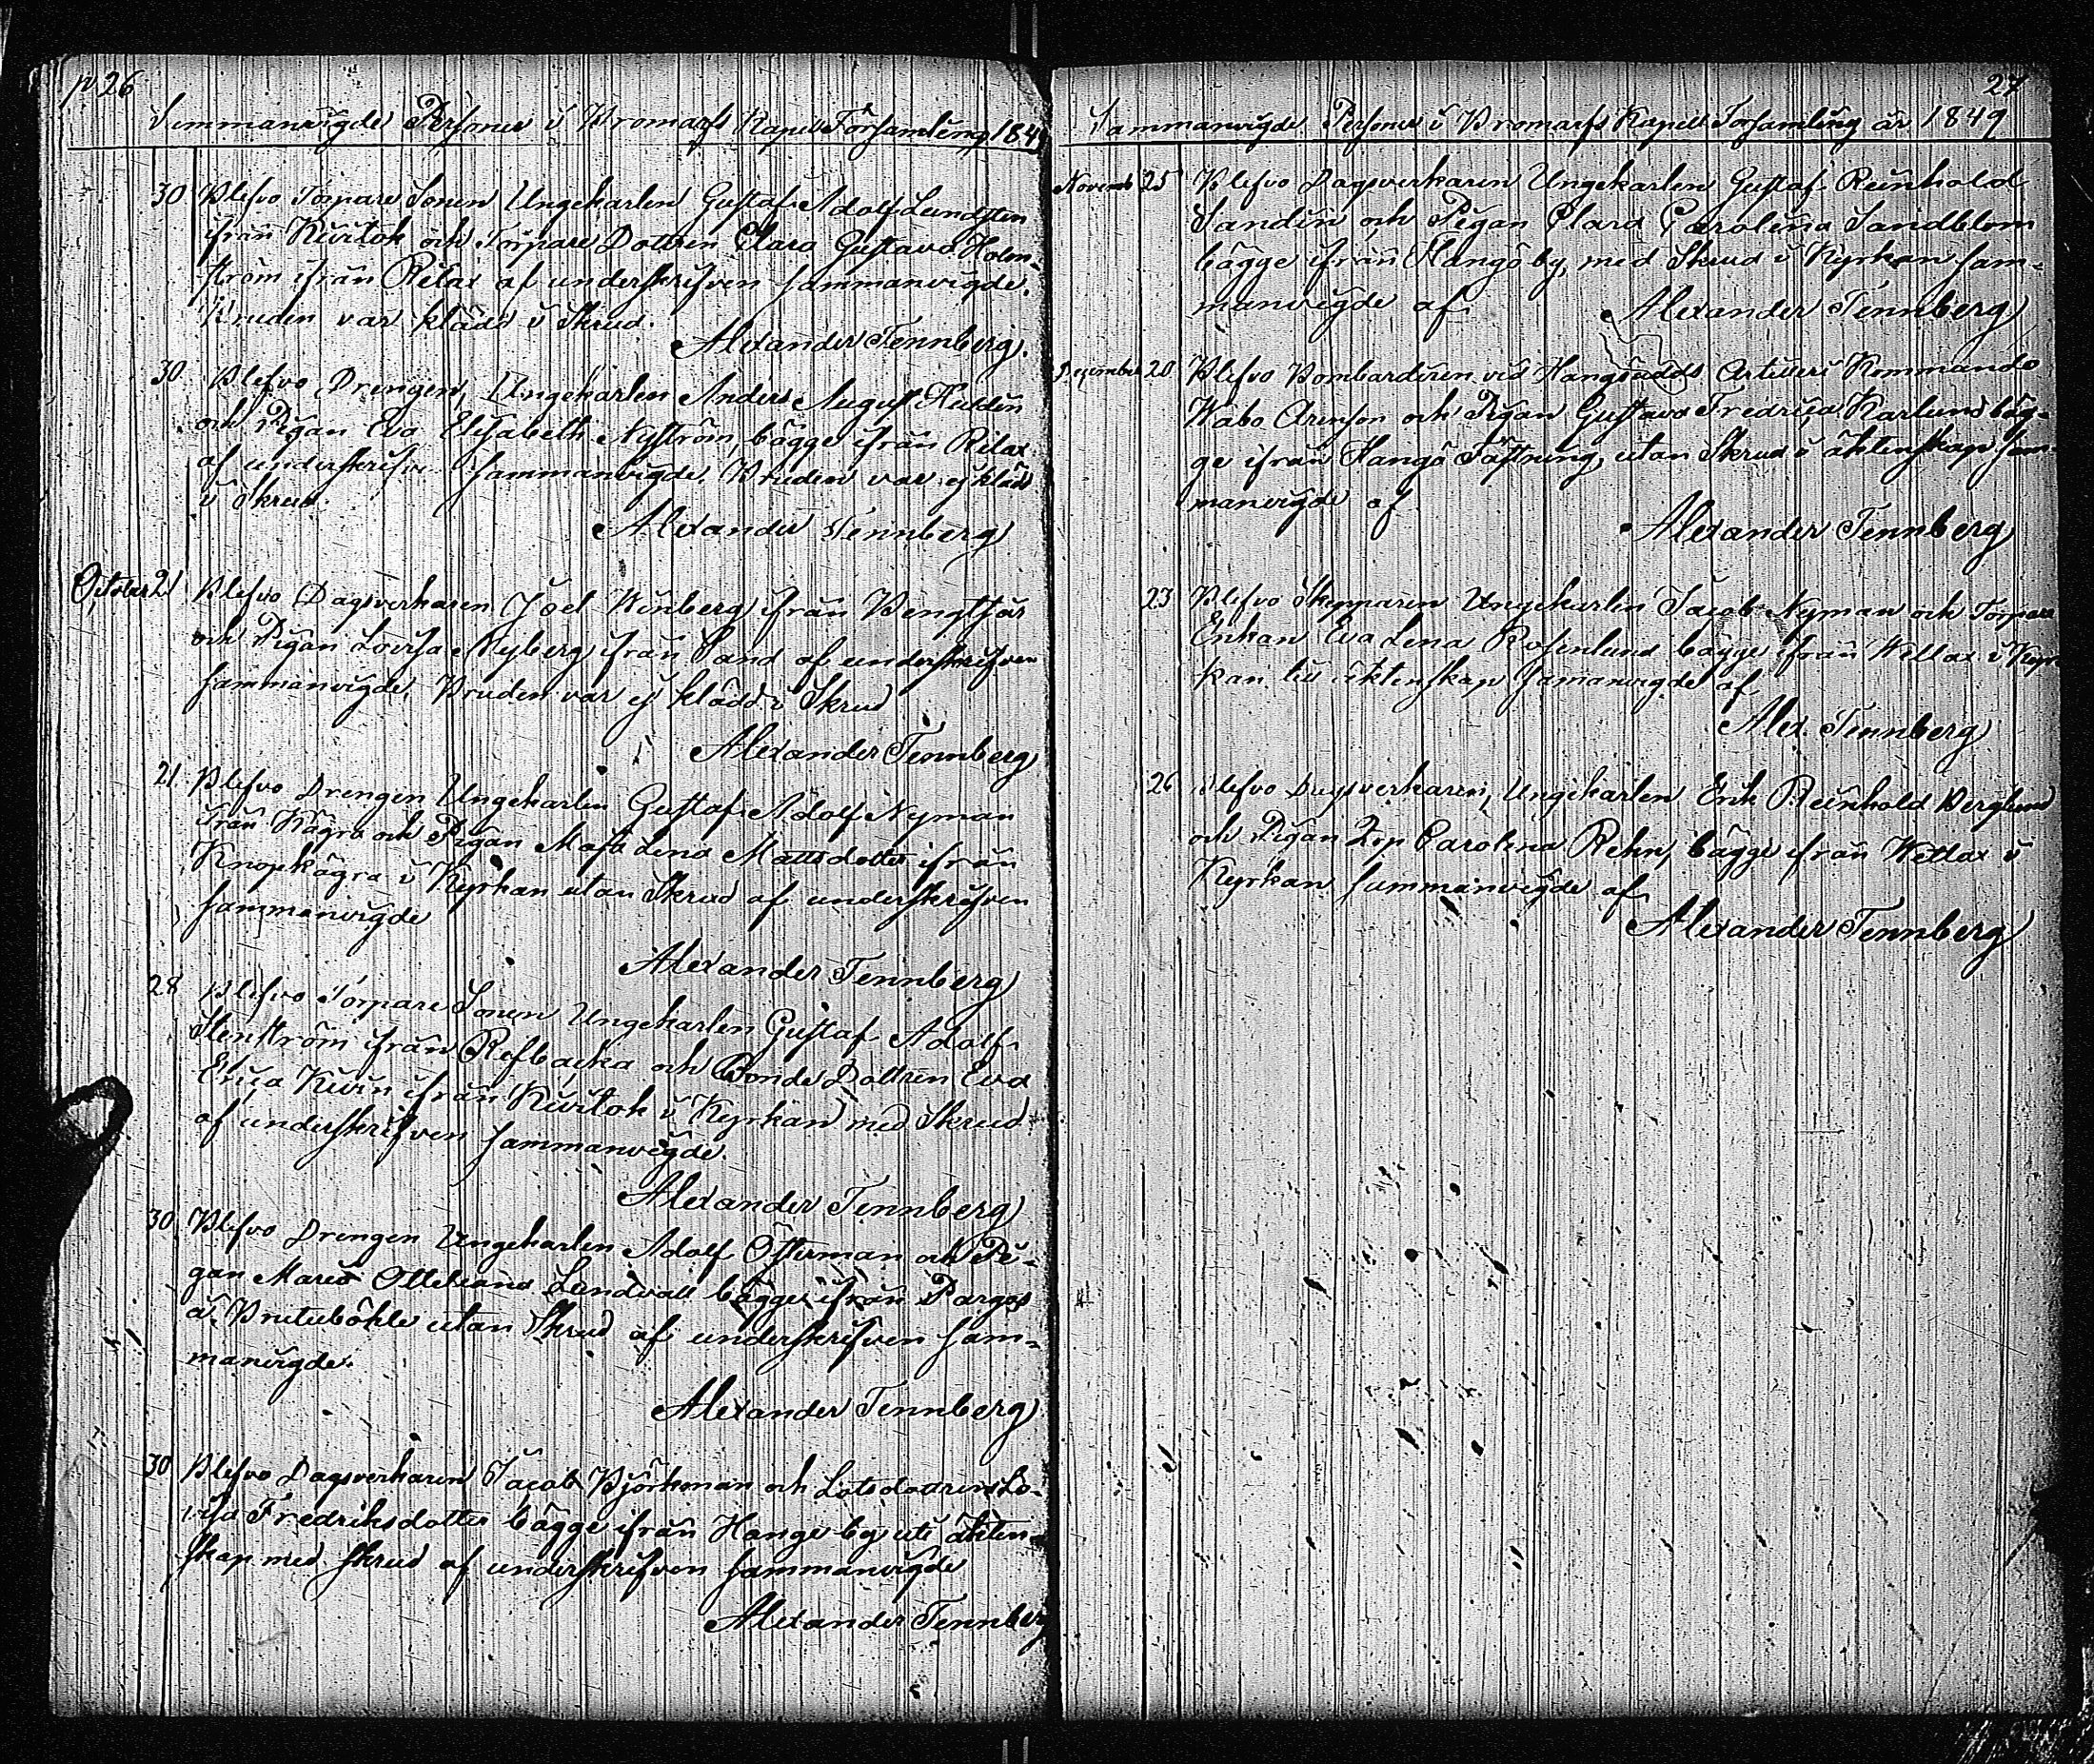 p 26
Sammanvigde Personer i Bromarfs Kapell Församling 1849
30 Blefvo Torpare Sonen Ungekarlen Gustaf Adolf Lundsten
ifrån Kivitok och Torpare Dottren Clara Gustava Holm-
ström ifrån Rilax af underskrifven sammanvigde.
Bruden var klädd i Skrud.
Alexander Tennberg.
30 Blefvo Drengen, Ungekarlen Anders August
och Pigan Eva Elisabeth Nyström, bägge ifrån Rilax
af underskrifv. sammanvigde. Bruden var ej klädd
i Skrud.
Alexander Tennberg
October 21 Blefvo Dagsverkaren Joel Winberg ifrån Bengtsår
och Pigan Lovisa Nyberg ifrån Sand af underskrifven
sammanvigde, Bruden var ej klädd i Skrud
Alexander Tennberg
21 Blefvo Drengen Ungekarlen Gustaf Adolf Nyman
från Kägra och Pigan Maja Lena Mattsdotter ifrån
Knopkägra i Kyrkan utan Skrud af underskrifven
sammanvigde
Alexander Tennberg
28 Blefvo Torpare Sonen Ungekarlen Gustaf Adolf
Stenström ifrån Refbacka och Bonde Dottren Eva
Erica ifrån Kivitok i Kyrkan med Skrud
af underskrifven sammanvigde.
Alexander Tennberg
30 Blefvo Drengen Ungekarlen Adolf Österman och Pi-
gan Maria Ottiliana Lundvall bägge ifrån Pargas
å utan Skrud af underskrifven sam-
manvigde.
Alexander Tennberg
30 Blefvo Dagsverkaren Jacob Björkman och Lotsdottren Lo-
visa Fredriksdotter bägge ifrån Hangö by uti äkten-
skap med skrud af underskrifven sammanvigde
Alexander Tennberg
27
Sammanvigde Personer i Bromarfs Kapell Församling år 1849
Novemb 25 Blefvo Dagsverkaren Ungekarlen Gustaf Reinhold
Sandin och Pigan Clara Carolina Sandblom
bägge ifrån Hangö by, med Skrud i Kyrkan sam-
manvigde af
Alexander Tennberg
December 20 Blefvo Bombardiren vid Hangöudds Artilleri Kommando
Wabo Arenson och Pigan Gustava Fredrica Karlund bäg-
ge ifrån Hangö Fästning, utan Skrud i äktenskap sam-
manvigde af
Alexander Tennberg
23 Blefvo Skepparen Ungekarlen Jacob Nyman och Torpare
Enkan Eva Lena Rosenlund bägge ifrån Wettlax i Kyr-
kan till äktenskap samanvigde af
Alex. Tennberg
26 Blefvo Dagsverkaren, Ungekarlen Erik Reinhold Berglund
och Pigan Carolina Rehn, bägge ifrån Wettlax i
Kyrkan sammanvigde af
Alexander Tennberg